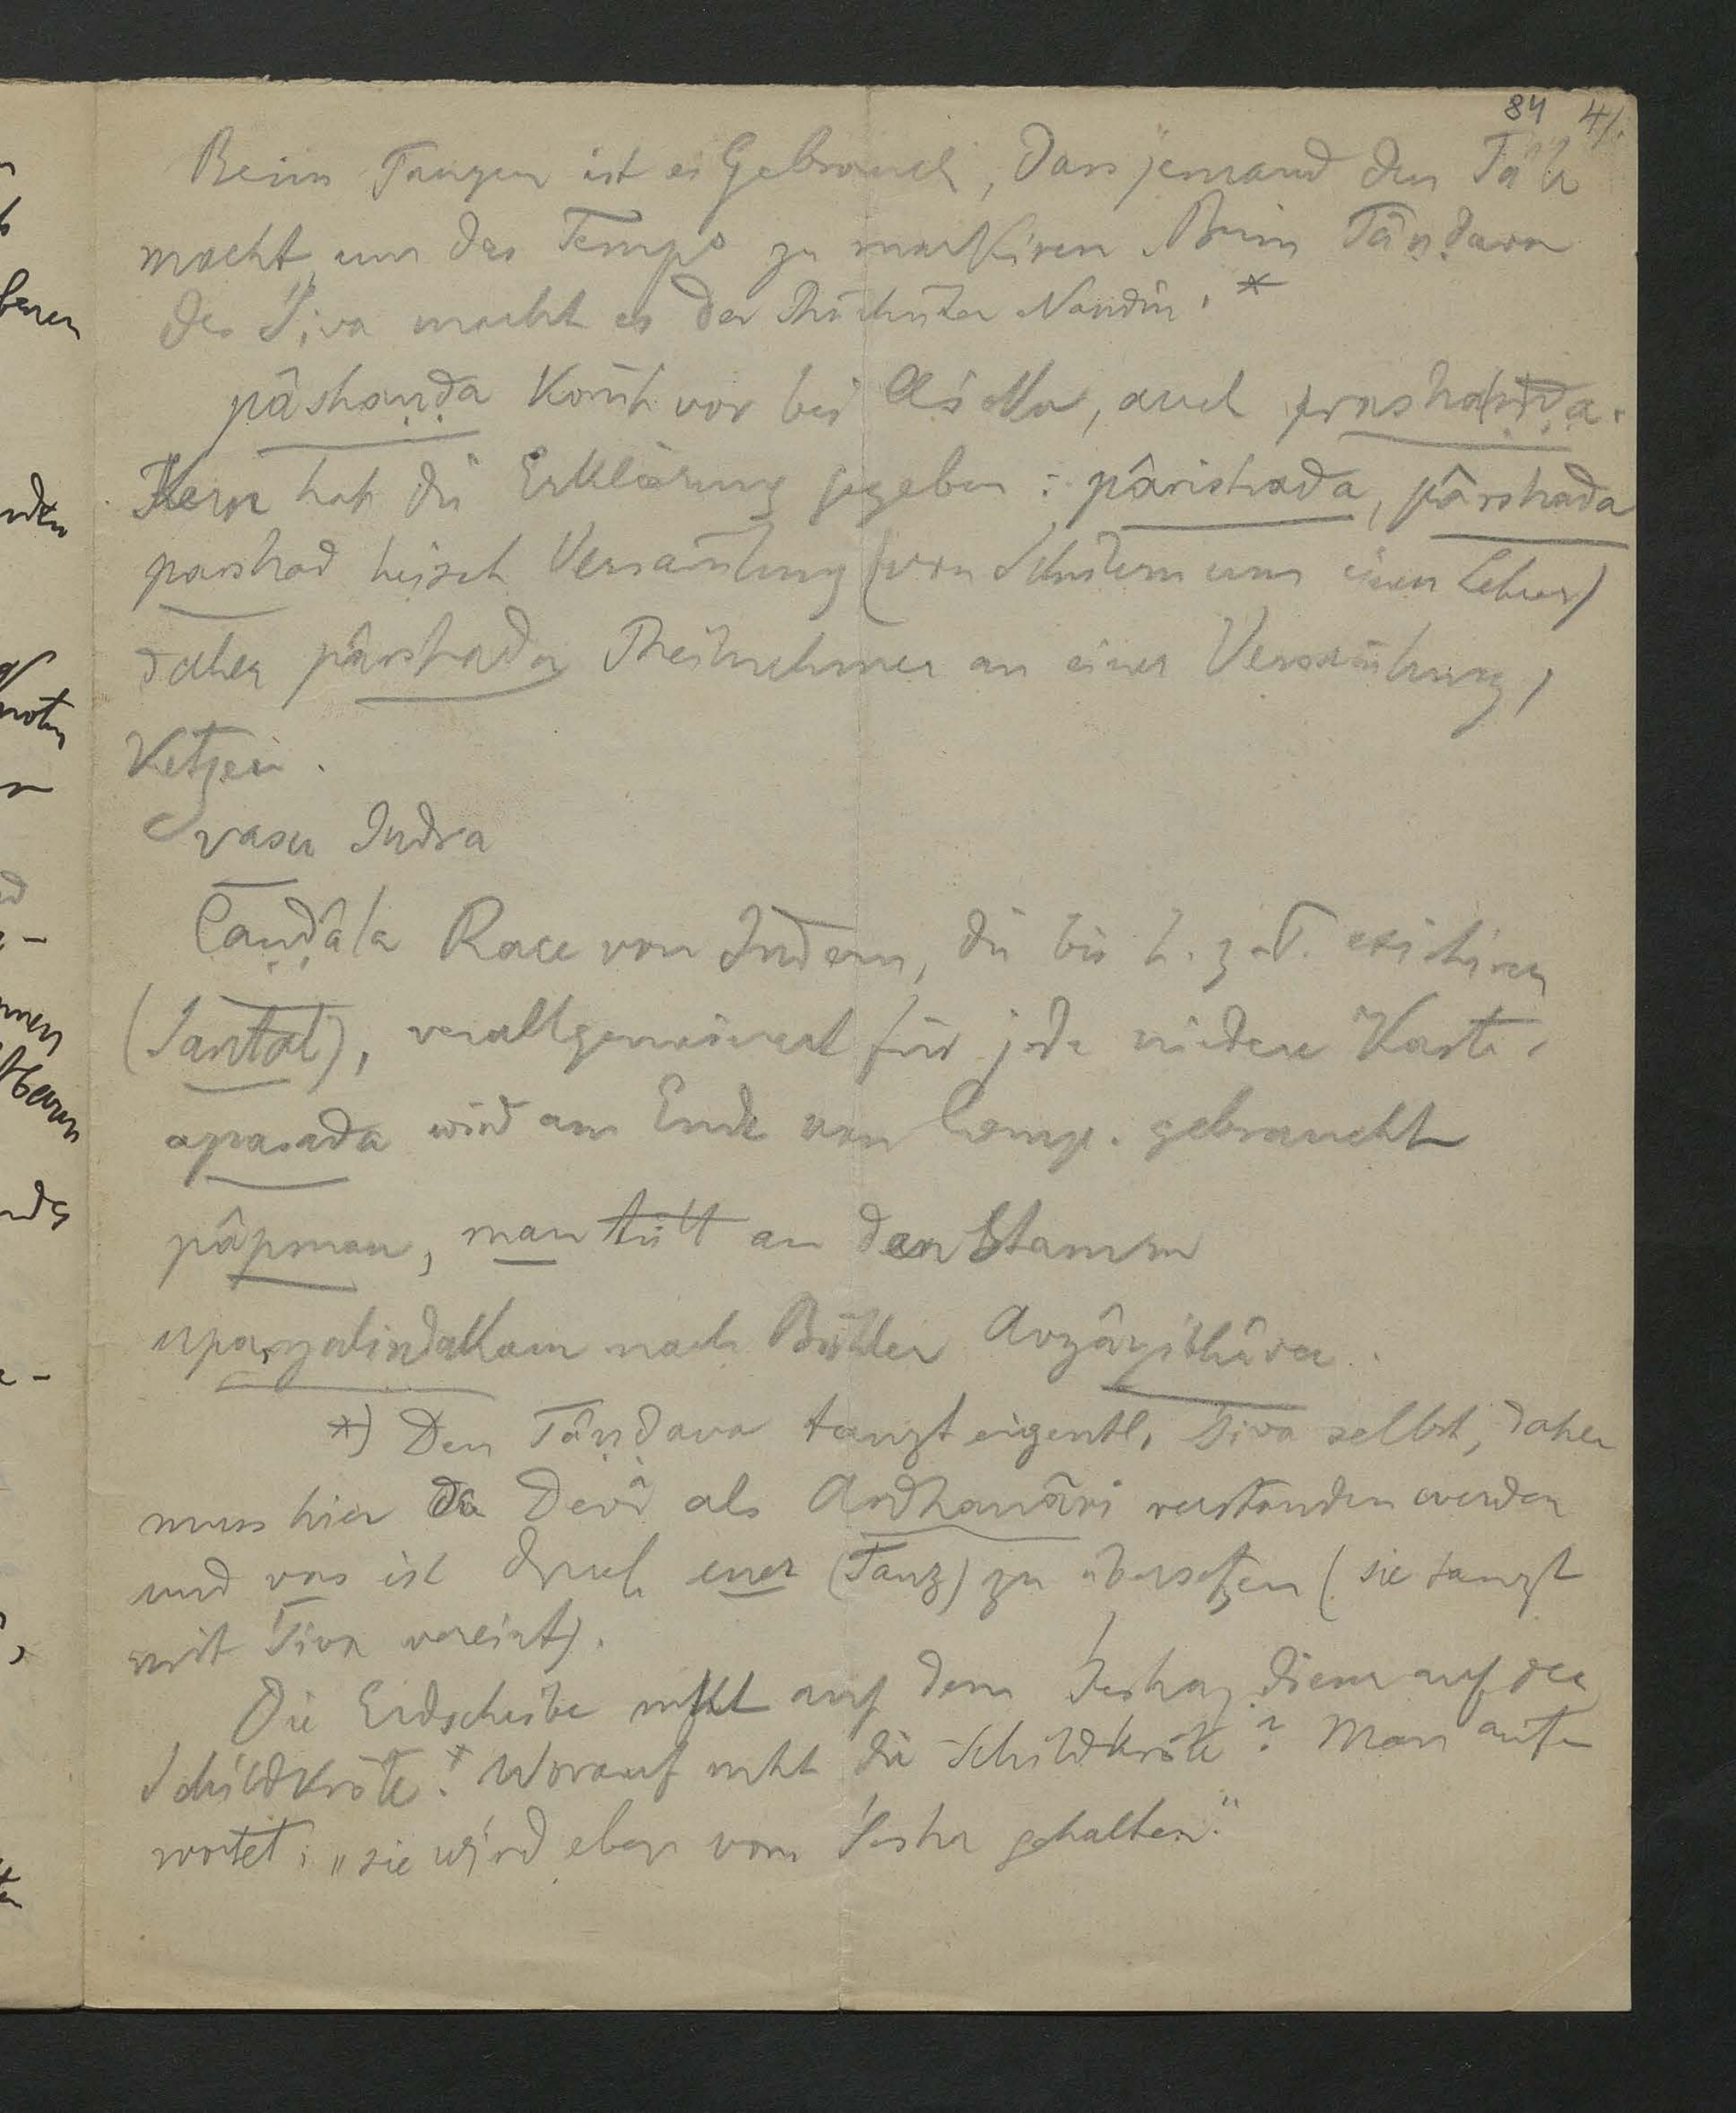 84 4/.
Beim Tanzen ist es Gebrauch, dass jemand den Takt
macht um das Tempo zu markiren Beim Tâṇḍava
des Śiva macht es der Thürhüter Nandin. *
pâshaṇḍa kom̄t vor bei Aśoka, auch prashaṇḍa.
Kern hat die Erklärung gegeben: pârishada, pârshada
parshad heisst Versam̄lung (von Schülern um einen Lehrer)
daher pârshada Theilnehmer an einer Versam̄lung,
Ketzer.
vasu Indra
Caṇḍâla Race von Indern, die bis h. z. T. existiren
(Santal), verallgemeinert für jede niedere Kaste.
apasada wird am Ende von Comp. gebraucht
pâpman, man tritt an den Stamm
nach Bühler
*) Den Tâṇḍava tanzt eigentl. Śiva selbst, daher
muss hier die Devî als Ardhanârî verstanden werden
und vas ist durch euer (Tanz) zu übersetzen (sie tanzt
mit Śiva vereint).
Die Erdscheibe ruht auf dem Śesha, dieser auf der
Schildkröte. Worauf ruht die Schildkröte? Man ant-
wortet: „sie wird eben vom Śesha gehalten."